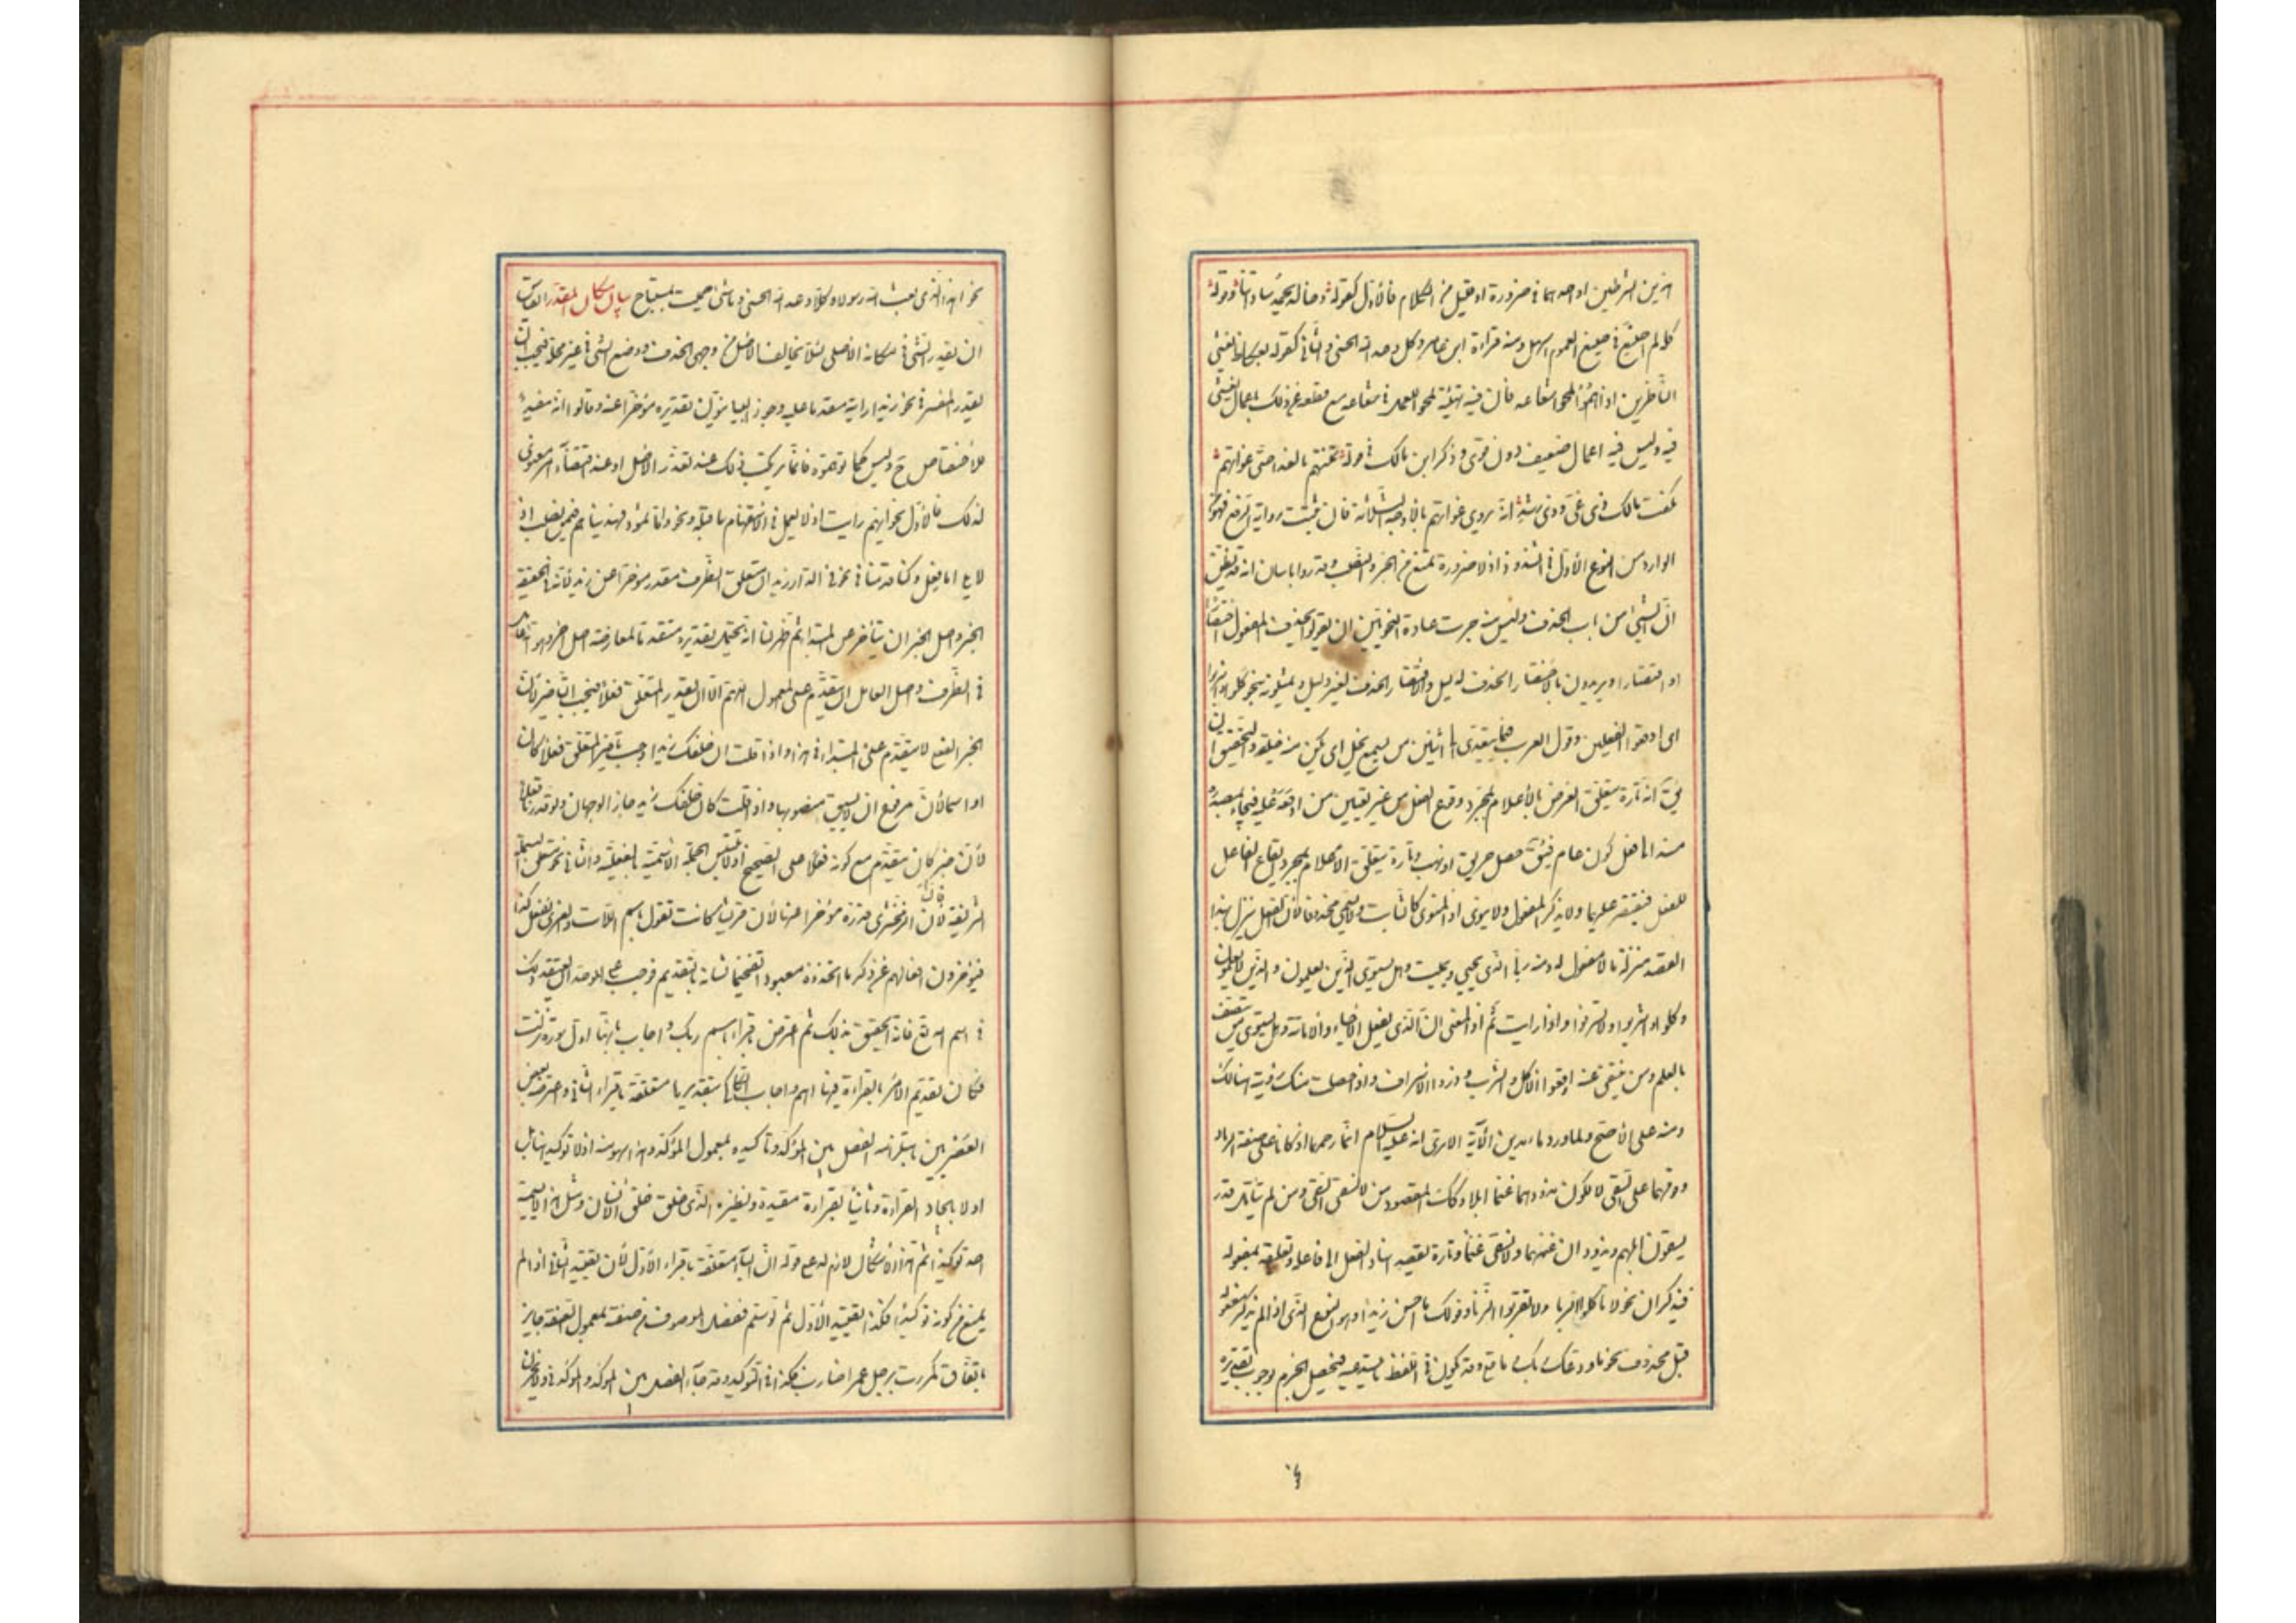 هذين الشرطين او احدهما فى ضرورة او قليل من الكلام فالاول كقوله وخالد يحمد ساداتنا وقوله
كله لم اصنع فى صيغ العموم اسهل ومنه قراءة ابن عامر وكل وعد الله الحسنى والثانى كقوله بعكاظ يعشى
الناظرين اذا هم لمحوا شعاعه فان فيه تهيئة لمحوا للعمل فى شعاعه مع قطعه عن ذلك باعمال يعشى
فيه وليس فيه اعمال ضعيف دون قوى وذكر ابن مالك فى قوله عممتهم بالندا حتى غواتهم
فكنت مالك ذى غى وذى رشد انه يروى غواتهم بالاوجه الثلاثة فان ثبتت رواية الرفع فهو
الوارد من النوع الاول فى الشذوذ اذ لا ضرورة تمنع من الجر والنصب وقد رويا بيان انه قد يظن
ان الشئ من باب الحذف وليس منه جرت عادة النحويين ان يقولوا يحذف المفعول اختصارا
او اقتصارا ويريدون بالاختصار الحذف لدليل والاقتصار الحذف لغير دليل ويمثلونه بنحو كلوا واشربوا
اى اوقعوا الفعلين وقول العرب فيما يتعدى الى اثنين من يسمع يخل اى يكن منه خيلة والتحقيق ان
يق انه تارة يتعلق الغرض بالاعلام بمجرد وقوع الفعل من غير تعيين من اوقعه عليه فيجاء بمصدره
مسندا الى فعل كون عام فيق حصل حريق او نهب وتارة يتعلق الاعلام بمجرد ايقاع الفاعل
للفعل فيقتصر عليهما ولا يذكر المفعول ولا ينوى اذ المنوى كالثابت ولا يسمى محذوفا لان الفعل ينزل لهذا
القصد منزلة ما لا مفعول له ومنه ربى الذى يحيى ويميت وهل يستوى الذين يعلمون والذين لا يعلمون
وكلوا واشربوا ولا تسرفوا واذا رايت ثم اذ المعنى ان الذى يفعل الاحياء والاماتة وهل يستوى من يتصف
بالعلم ومن ينتفى عنه اوقعوا الاكل والشرب وذروا الاسراف واذا حصلت منك رؤية هنالك
ومنه على الاصح ولما ورد ماء مدين الآية الا ترى انه عليه السلام انما رحمهما اذ كانتا على صفة الذياد
وقومهما على السقى لا لكون مذودهما غنما وابلا وكك المقصود من لا نسقى السقى ومن لم يتامل قدر
يسقون ابلهم وتذودان غنمهما ولا نسقى غنما وتارة يقصد اسناد الفعل الى فاعله وتعليقه بمفعوله
فيذكران نحو لا تاكلوا الربا ولا تقربوا الزنا وقولك ما احسن زيدا وهو النوع الذى اذا لم يذكر مفعوله
قيل محذوف نحو ما ودعك ربك وما قلى وقد يكون فى اللفظ ما يستدعيه فيحصل الجزم بوجوب تقديره
نحو اهذا الذى بعث الله رسولا وكلا وعد الله الحسنى وما شئ حميت بمستباح بيان مكان المقدر القياس
ان يقدر الشئ فى مكانه الاصلى لئلا يخالف الاصل من وجهى الحذف ووضع الشئ فى غير محله فيجب ان
يقدر المفسر فى نحو زيدا رايته مقدما عليه وجوز البيانيون تقديره مؤخرا عنه وقالوا انه يفيد
الاختصاص ح وليس كما توهموه فانما يرتكب ذلك عند تعذر الاصل او عند اقتضاء امر معنوى
لذلك فالاول نحو ايهم رايت اذ لا يعمل فى الاستفهام ما قبله ونحو واما ثمود فهديناهم فيمن نصب اذ
لا يلى اما فعل وكنا قدمنا فى نحو فى الدار زيد ان متعلق الظرف يقدر مؤخرا عن زيد لانه فى الحقيقة
الخبر واصل الخبر ان يتاخر عن المبتدا ثم ظهر لنا انه يحتمل تقديره مقدما لمعارضة اصل اخر وهو انه عامل
فى الظرف واصل العامل ان يتقدم على المعمول اللهم الا ان يقدر المتعلق فعلا فيجب التاخير لان
الخبر الفعلى لا يتقدم على المبتدا فى هذا واذا قلت ان خلفك زيدا وجب تاخير المتعلق فعلا كان
او اسما لان مرفوع ان لا يسبق منصوبها واذا قلت كان خلفك زيد جاز الوجهان ولو قدرناه فعلا
لان خبر كان يتقدم مع كونه فعلا على الصحيح اذ لا تلتبس الجملة الاسمية بالفعلية والثانى نحو متعلق البسملة
الشريفة فان الزمخشرى قدره مؤخرا عنها لان قريشا كانت تقول باسم اللات والعزى نفعل كذا
فيؤخرون افعالهم عن ذكر ما اتخذوه معبودا تفخيما لشانه بالتقديم فوجب على الموحد ان يعتقد ذلك
فى اسم الله تع فانه الحقيق بذلك ثم اعترض باقرا باسم ربك واجاب بانها اول سورة نزلت
فكان تقديم الامر بالقراءة فيها اهم واجاب السكاكى بتقديرها متعلقة باقرا الثانى واعترضه بعض
العصريين باستلزامه الفصل بين المؤكد وتاكيده بمعمول المؤكد وهذا سهو منه اذ لا توكيد هنا بل
اولا بايجاد القراءة وثانيا بقراءة مقيدة ونظيره الذى خلق خلق الانسان ومثل هذا لا يسميه
احد توكيدا ثم هذا الاشكال لازم له على قوله ان الباء متعلقة باقرا الاول لان تقييد الثانى اذا لم
يمنع من كونه توكيدا فكذا تقييد الاول ثم لو سلم ففصل الموصوف من صفته بمعمول الصفة جايز
باتفاق كمررت برجل عمرا ضارب فكذا فى التوكيد وقد جاء الفصل بين المؤكد والمؤكد فى ولا يحزن